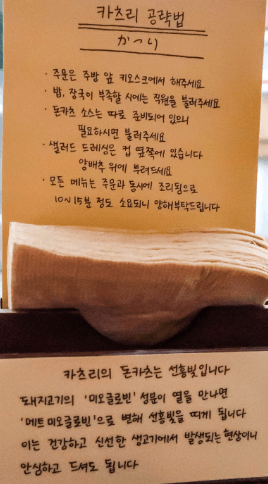 카츠리 공략법
かつり
· 주문은 주방 앞 키오스크에서 해주세요
· 밥, 장국이 부족할 시에는 직원을 불러주세요
· 돈카츠 소스는 따로 준비되어 있으니
필요하시면 불러주세요
· 샐러드 드레싱은 컵 옆쪽에 있습니다
양배추 위에 뿌려드세요
· 모든 메뉴는 주문과 동시에 조리됨으로
10~15분 정도 소요되니 양해부탁드립니다
카츠리의 돈카츠는 선홍빛입니다
돼지고기의 '미오글로빈' 성분이 열을 만나면
'메트미오글로빈'으로 변해 선홍빛을 띠게 됩니다
이는 건강하고 신선한 생고기에서 발생되는 현상이니
안심하고 드셔도 됩니다